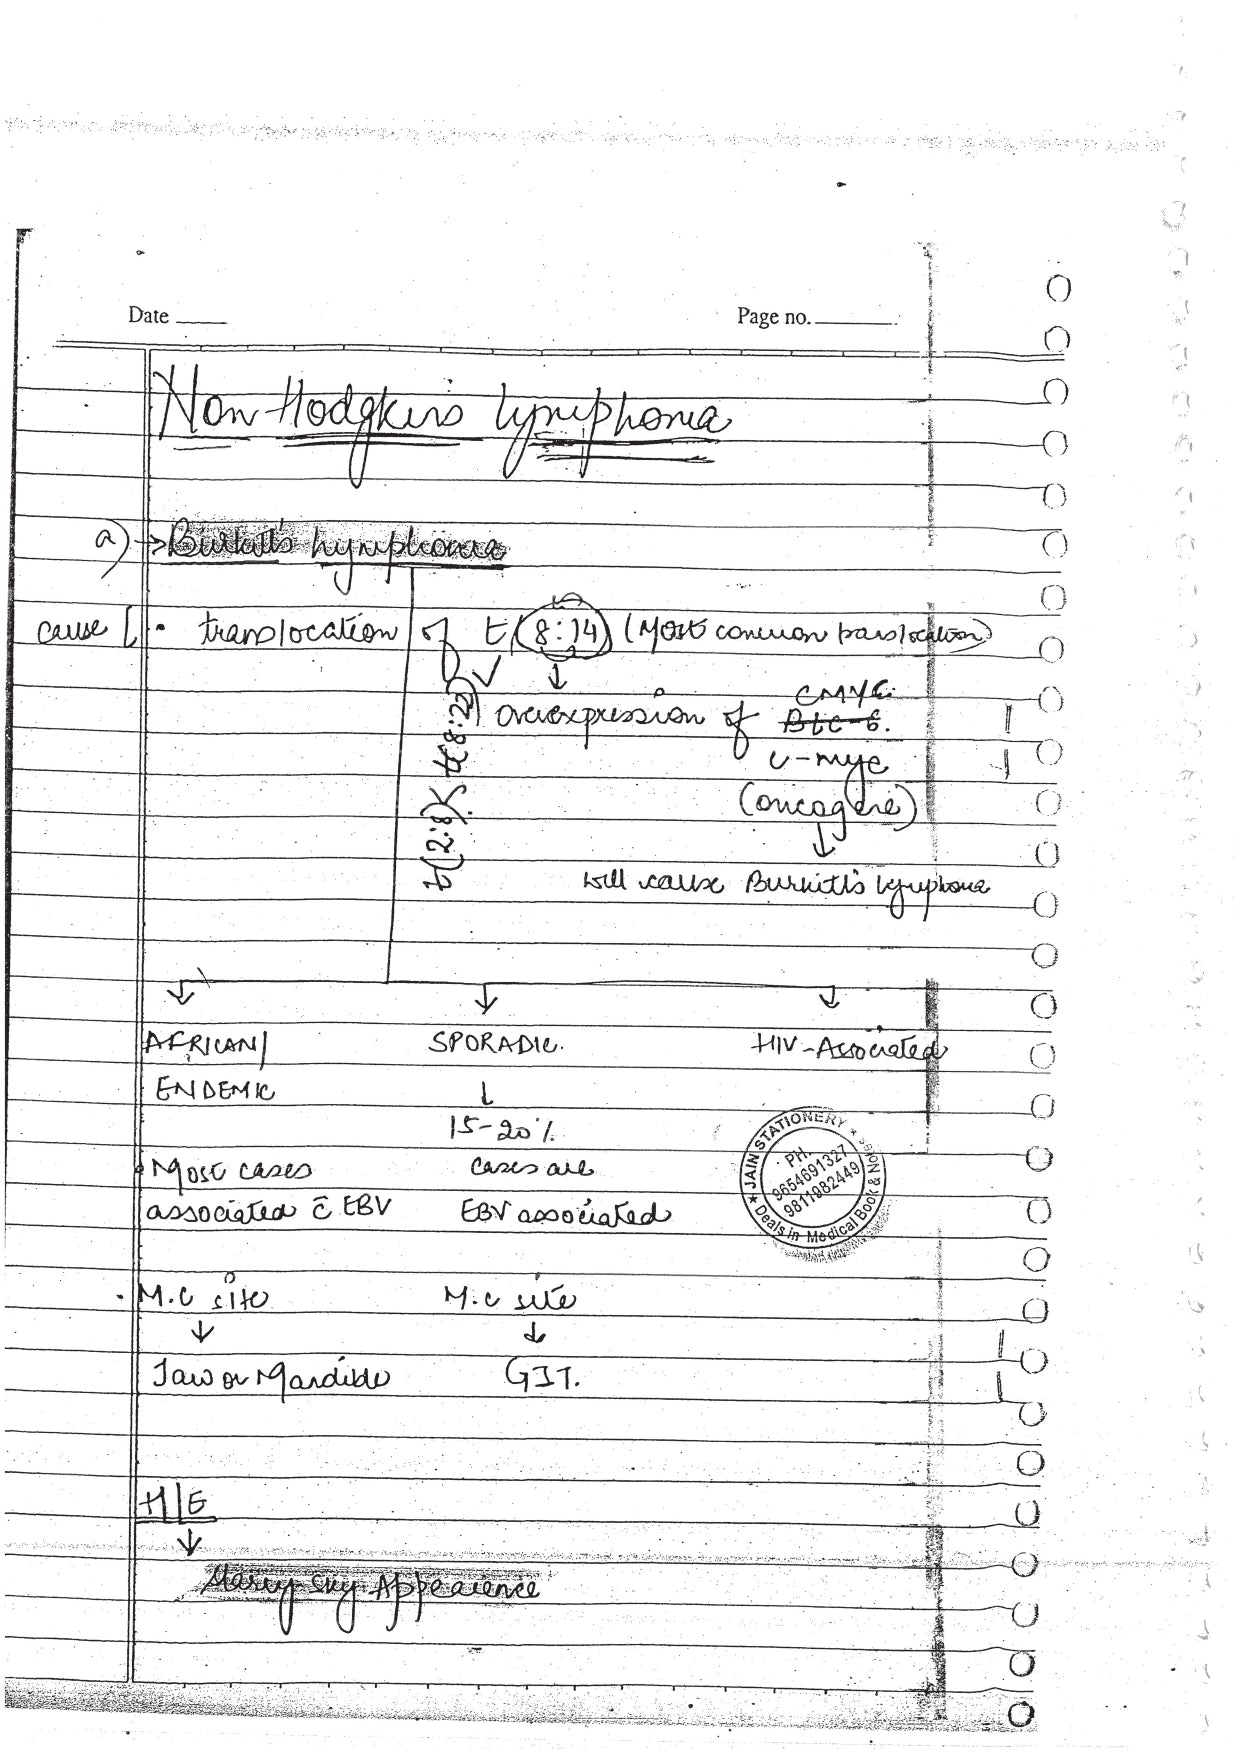 Date
Page no.
Non Hodgkin's Lymphoma
a) → Burkitt's Lymphoma
cause [ • translocation of t(8:14) (Most common translocation)
t(2:8) t(8:22)
overexpression of CMYC
Btc-6.
c-myc
(oncogene)
will cause Burkitt's lymphoma
AFRICAN/ SPORADIC. HIV-Associated
ENDEMIC
15-20%
Most cases cases are
associated c̄ EBV EBV associated
★ JAIN STATIONERY ★
PH.
9654691327
9811982449
Deals in Medical Book &
• M.C site M.C site
Jaw or Mandible GIT.
H/E
Starry Sky Appearence